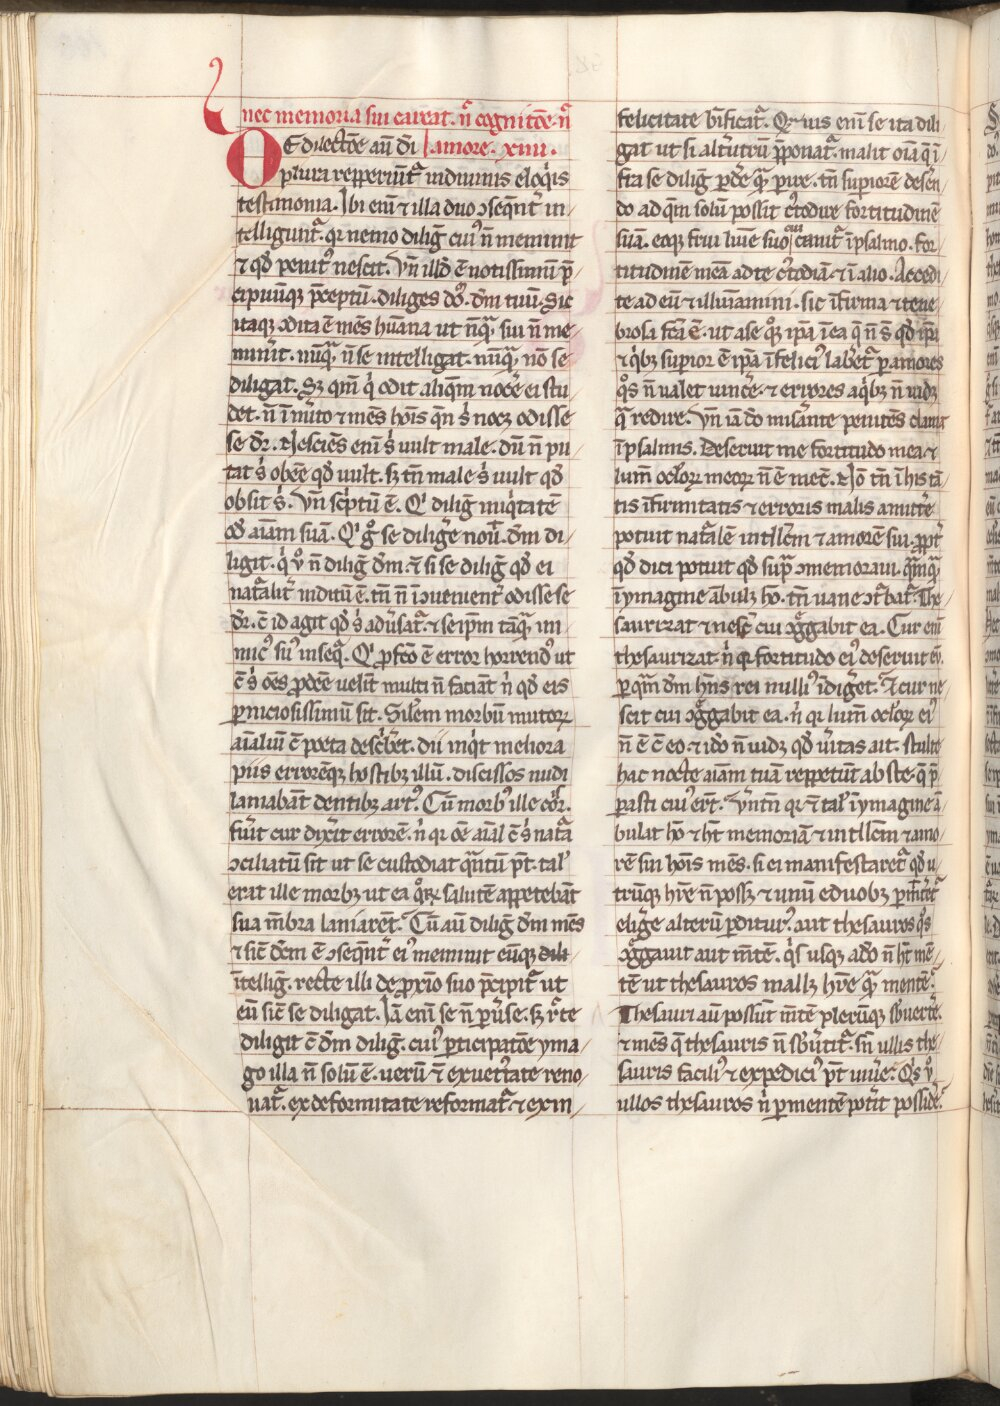 nec memoria sui careat. n̄ cognitōe. n̄
DE dilectōe aū dī | amore. xiiii.
plura repperiūt᷑ indiuinis eloq̇is
testimonia. Ibi enī ⁊ illa duo ɔseq̄nt᷑ in/
telligunt᷑. qr nemo diliḡ cui᷒ n̄ meminit
⁊ qd̓ penit᷒ nescit. Vn̄ illd̓ ē notissimū p̄/
cipuūq; p̄ceptū. diliges dō. dm̄ tuū. Sic
itaq; ɔdita ē mēs hūana ut nūq̄ᷓ sui n̄ me/
minit. nūq̄ᷓ n̄ se intelligat. nūq̄ᷓ nō se
diligat. Sꝫ qm̄ q̇ odit aliq̄m noc̄e ei stu/
det. n̄ īm̄ito ⁊ mēs hoīs q̄n s̓ nocꝫ odisse
se dr̄. Nesciēs enī s̓ uult male. dū n̄ pu/
tat s̓ obēe qd̓ uult. sꝫ tn̄ male s̓ uult qd̓
obsit s̓. Vn̄ sc̓ptū ē. Q̇ diliḡ iniq̇tatē
od̓ aīam suā. Q̇ gͦ se diliḡe nouit. dm̄ di/
ligit. q̇ uͦ n̄ diliḡ dm̄. ⁊̄ si se diliḡ qd̓ ei
nat̄alit᷑ inditū ē. tn̄ n̄ īɔuenient᷑ odisse se
dr̄. c̄ id agit qd̓ s̓ adūsat᷑. ⁊ seip̄m tāq̄ᷓ ini/
mic᷒ su᷒ inseq̄ᷓ. Q̇ ꝓfc̄o ē error horrend᷒ ut
c̄ s̓ oēs ꝓdēe uelīt multi n̄ faciāt n̓ qd̓ eis
ꝑniciosissimū sit. Silēm morbū mutoꝝ
aīaliū c̄ poeta desc̓bet. dii inq̇t meliora
piis errorēq; hostibꝫ illū. discissos nudi
laniabāt dentibꝫ art᷒. Cū morb᷒ ille cōr.
fūit cur dix̄it errorē. n̓ qr oē aīal c̄ s̓ nat̄a
ɔciliatū sit ut se custodiat q̄ᷓtū pōt. tal᷒
erat ille morbꝫ ut ea qͦꝝ salutē appetebāt
sua m̄bra laniarēt. Cū aū diliḡ dm̄ mēs
⁊ sic̄ dc̄m ē ɔseq̄nt᷑ ei᷒ meminit eūq; dili
ītelliḡ. recte illi de ꝓxīo suo p̄cipit᷑ ut
eū sic̄ se diligat. Iā enī se n̄ ꝑūse. sꝫ r̄cte
diligit c̄ dm̄ diliḡ. cui᷒ ꝑticipatōe yma/
go illa n̄ solū ē. uerū ⁊̄ exuet᷑tate reno/
uat᷑. exdeformitate reformat᷑. ⁊ exin/
felicitate b̄tificat᷑. Qᷓuis enī se ita dili/
gat ut si alt̄utrū ꝓponat᷑. malit oīa q̄ ī/
fra se diliḡ ꝑdēe q̄ᷓ ꝑire. tn̄ suꝑiorē deseñ/
do ad q̄m solū possit c᷒todire fortitudinē
suā. eoq; frui lumīe suo cui canit᷑ īpsalmo. for/
titudinē meā ad te c᷒todiā. ⁊ ī alio. Accedi/
te ad eū ⁊ illuīamini. sic īfirma ⁊ tene/
brosa fc̄a ē. ut a se qͦꝫ ip̄a ī ea q̄ n̄ s̄ qd̓ ip̄a
⁊ q̇bꝫ suꝑior ē ip̄a īfelici᷒ labet᷑ ꝑ amores
qͦs n̄ ualet uinc̄e. ⁊ errores a q̇bꝫ n̄ uidꝫ
q̄ redire. Vn̄ iā dō mis̄ante penitēs clamat
īpsalmis. Deseruit me fortitudo mea. ⁊
lum̄ ocl̄oꝝ meoꝝ n̄ ē mec̄. Nō tn̄ ī his tā/
tis īfirmitatis ⁊ erroris malis amitt̄e
potuit nat̄alē intll̄cm̄ ⁊ amorē sui. ꝓpt᷑
qd̓ dici potuit qd̓ sup̄ᷓ ɔmemoraui. q̄ᷓmq̄ᷓ
īymagine ābulꝫ hō. tn̄ uane ɔt᷑bat᷑. The/
saurizat ⁊ nesc̄ cui ɔgͦgabit ea. Cur enī
thesaurizat. n̓ qr fortitudo ei᷒ deseruit eū.
ꝑ q̄ᷓm dm̄ hn̄s rei nulli᷒ īdiḡet. ⁊ cur ne/
scit cui ɔgͦgabit ea. n̓ qr lum̄ ocl̄oꝝ ei᷒
n̄ ē c̄ eo. ⁊ idō n̄ uidꝫ qd̓ ūitas ait. stulte
hac nocte aīam tuā reppetūt abs te. q̄ p̄/
ꝑasti cui᷒ er̄t. Vn̄tn̄ qr ⁊̄ tal᷒ īymagine ā/
bulat hō ⁊ ht̄ memoriā ⁊ intll̄cm̄ ⁊ amo/
rē sui hoīs mēs. si ei manifestaret᷑ qd̓ u/
trūq; hr̄e n̄ possꝫ ⁊ unū e duobꝫ ꝑmitt̄et᷑
eliḡe alterū ꝑditur᷒. aut thesauros qͦs
ɔgͦgauit aut m̄tē. q̇s usq; adō n̄ ht̄ mē/
tē ut thesauros mallꝫ hr̄e q̄ᷓ mentē.
Thesauri aū possūt m̄tē plerūq; sb̄uert̄e.
⁊ mēs q̄ thesauris n̄ sb̄ūtit᷑. sn̄ ullis the/
sauris facili᷒ ⁊ expedici᷒ pōt uiūe. Q̇s uͦ
ullos thesauros n̓ ꝑ mentē pot̄it possid̄e.